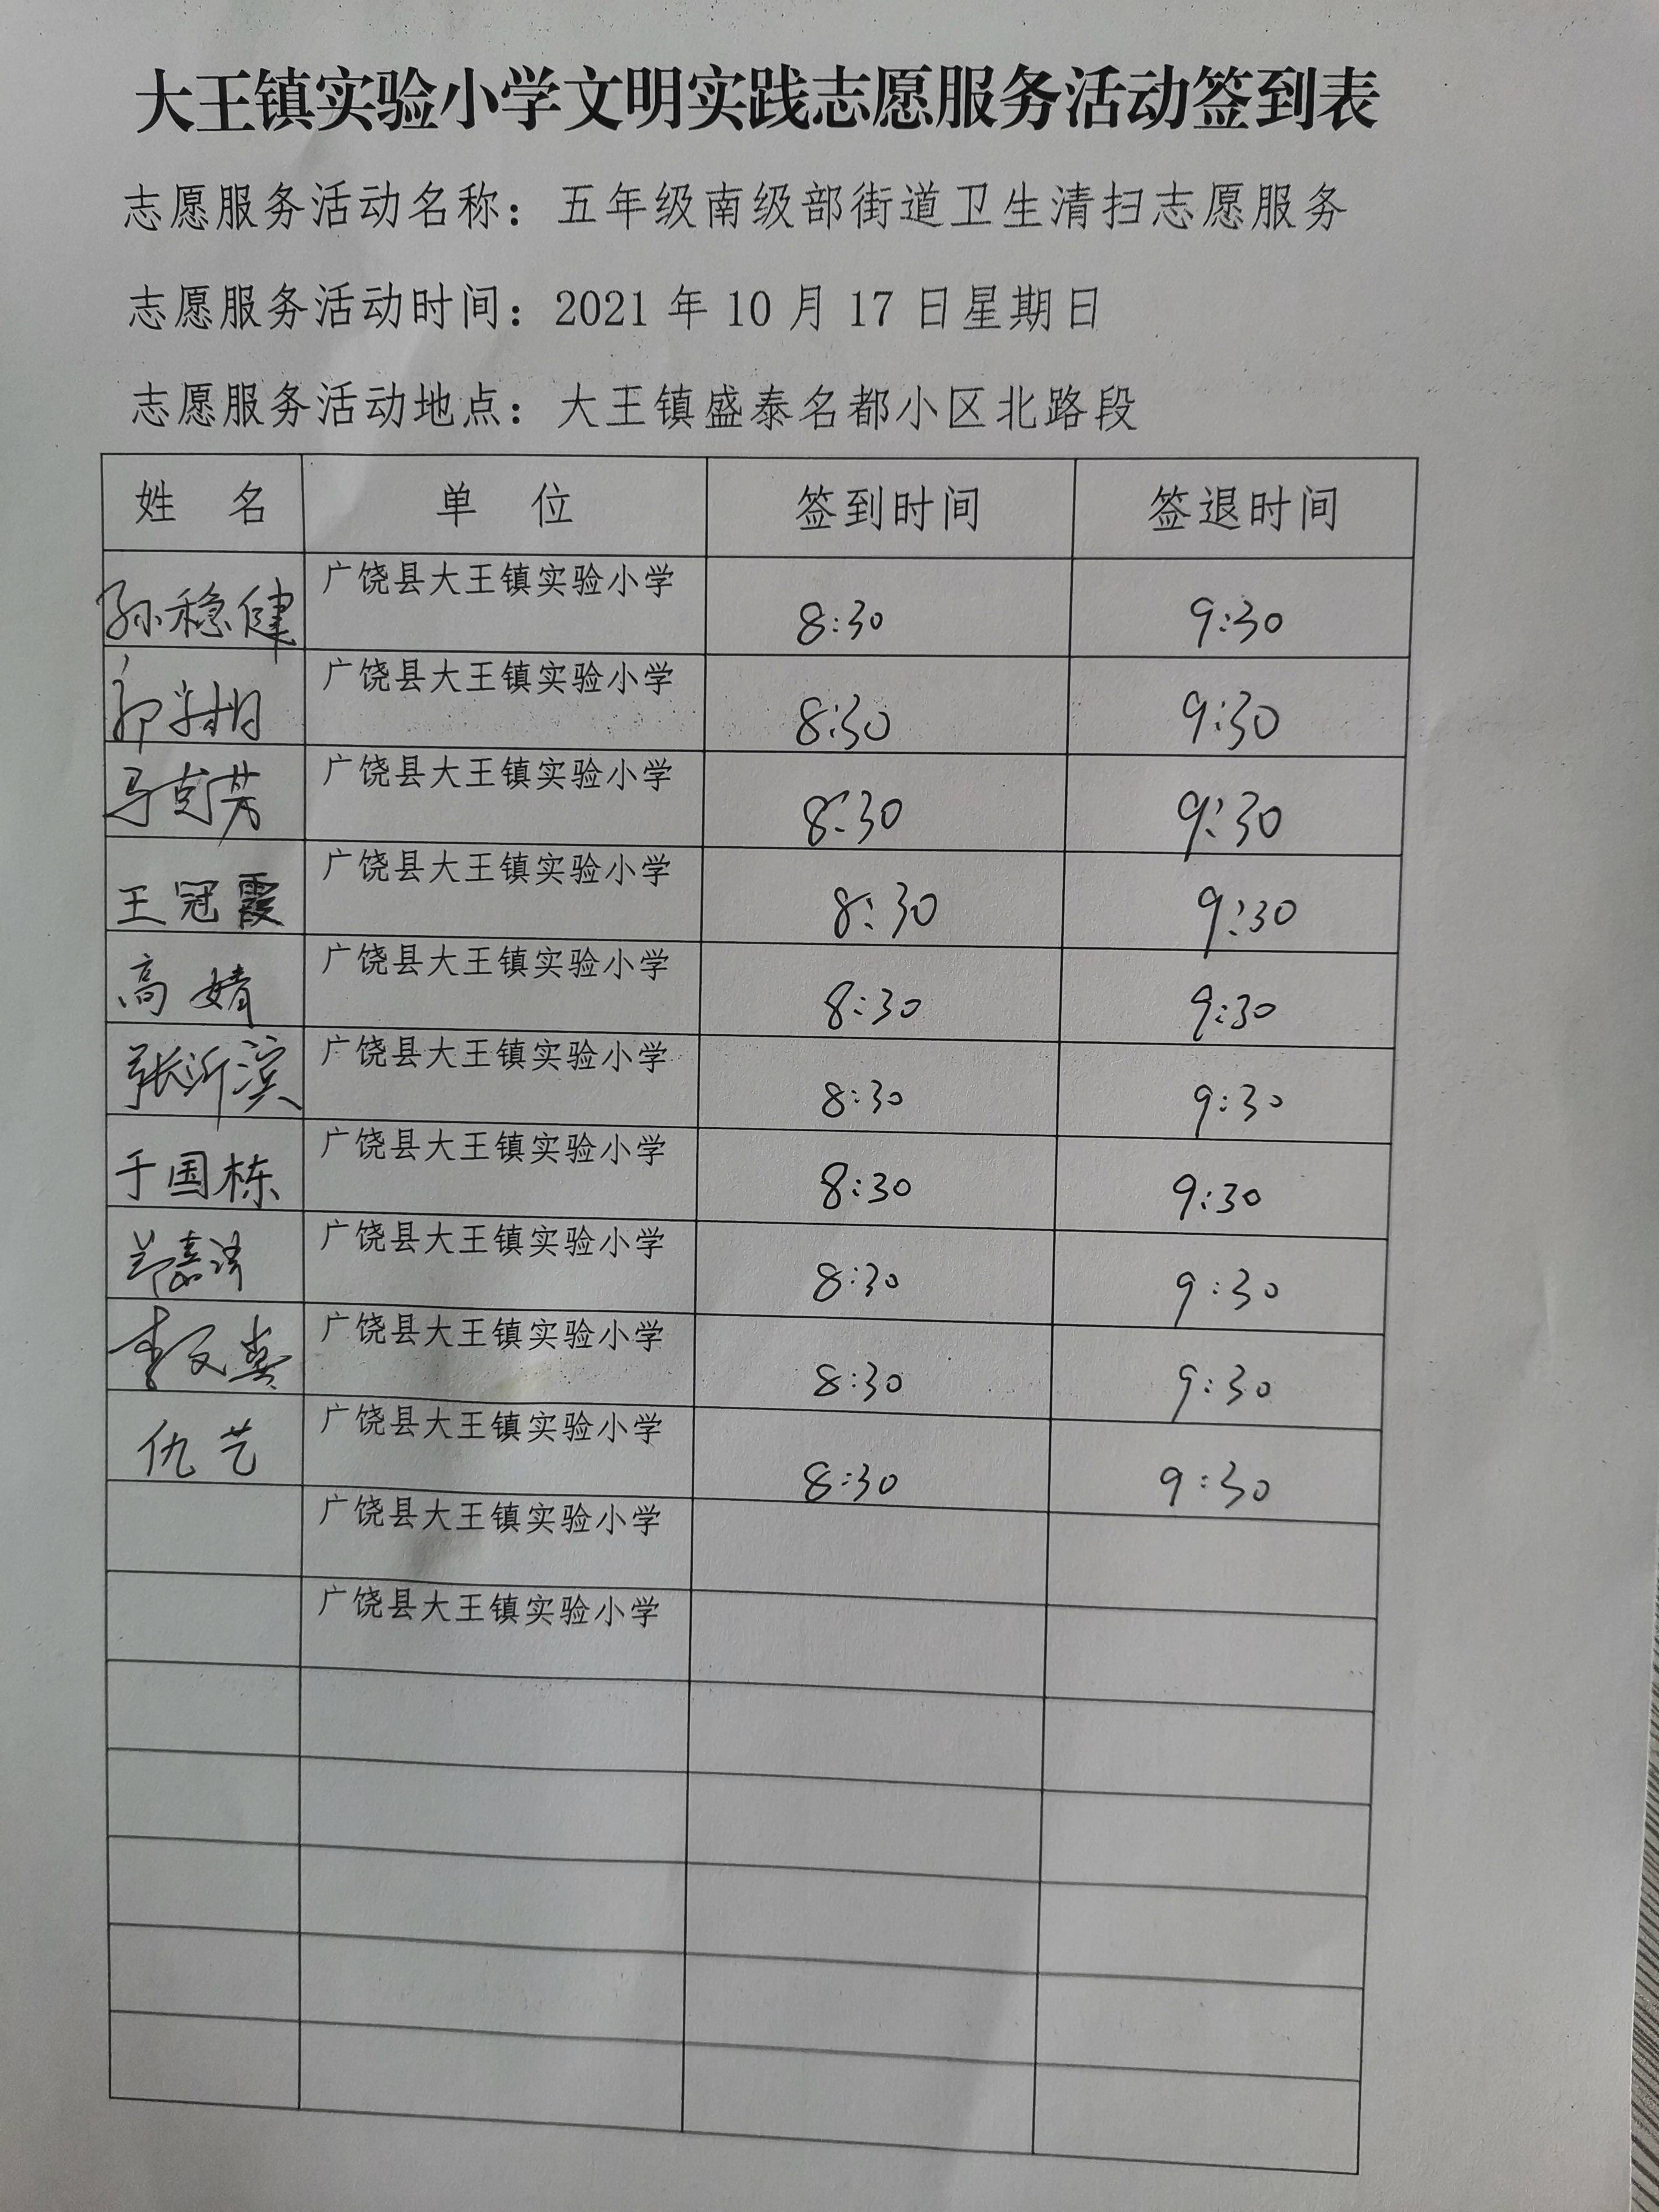 大王镇实验小学文明实践志愿服务活动签到表
志愿服务活动名称：五年级南级部街道卫生清扫志愿服务
志愿服务活动时间：2021 年 10 月 17 日星期日
志愿服务活动地点：大王镇盛泰名都小区北路段
姓 名 单 位 签到时间 签退时间
孙稳健 广饶县大王镇实验小学 8:30 9:30
广饶县大王镇实验小学 8:30 9:30
马克芳 广饶县大王镇实验小学 8:30 9:30
王冠霞 广饶县大王镇实验小学 8:30 9:30
高婧 广饶县大王镇实验小学 8:30 9:30
张沂滨 广饶县大王镇实验小学 8:30 9:30
于国栋 广饶县大王镇实验小学 8:30 9:30
广饶县大王镇实验小学 8:30 9:30
广饶县大王镇实验小学 8:30 9:30
仇艺 广饶县大王镇实验小学 8:30 9:30
广饶县大王镇实验小学
广饶县大王镇实验小学